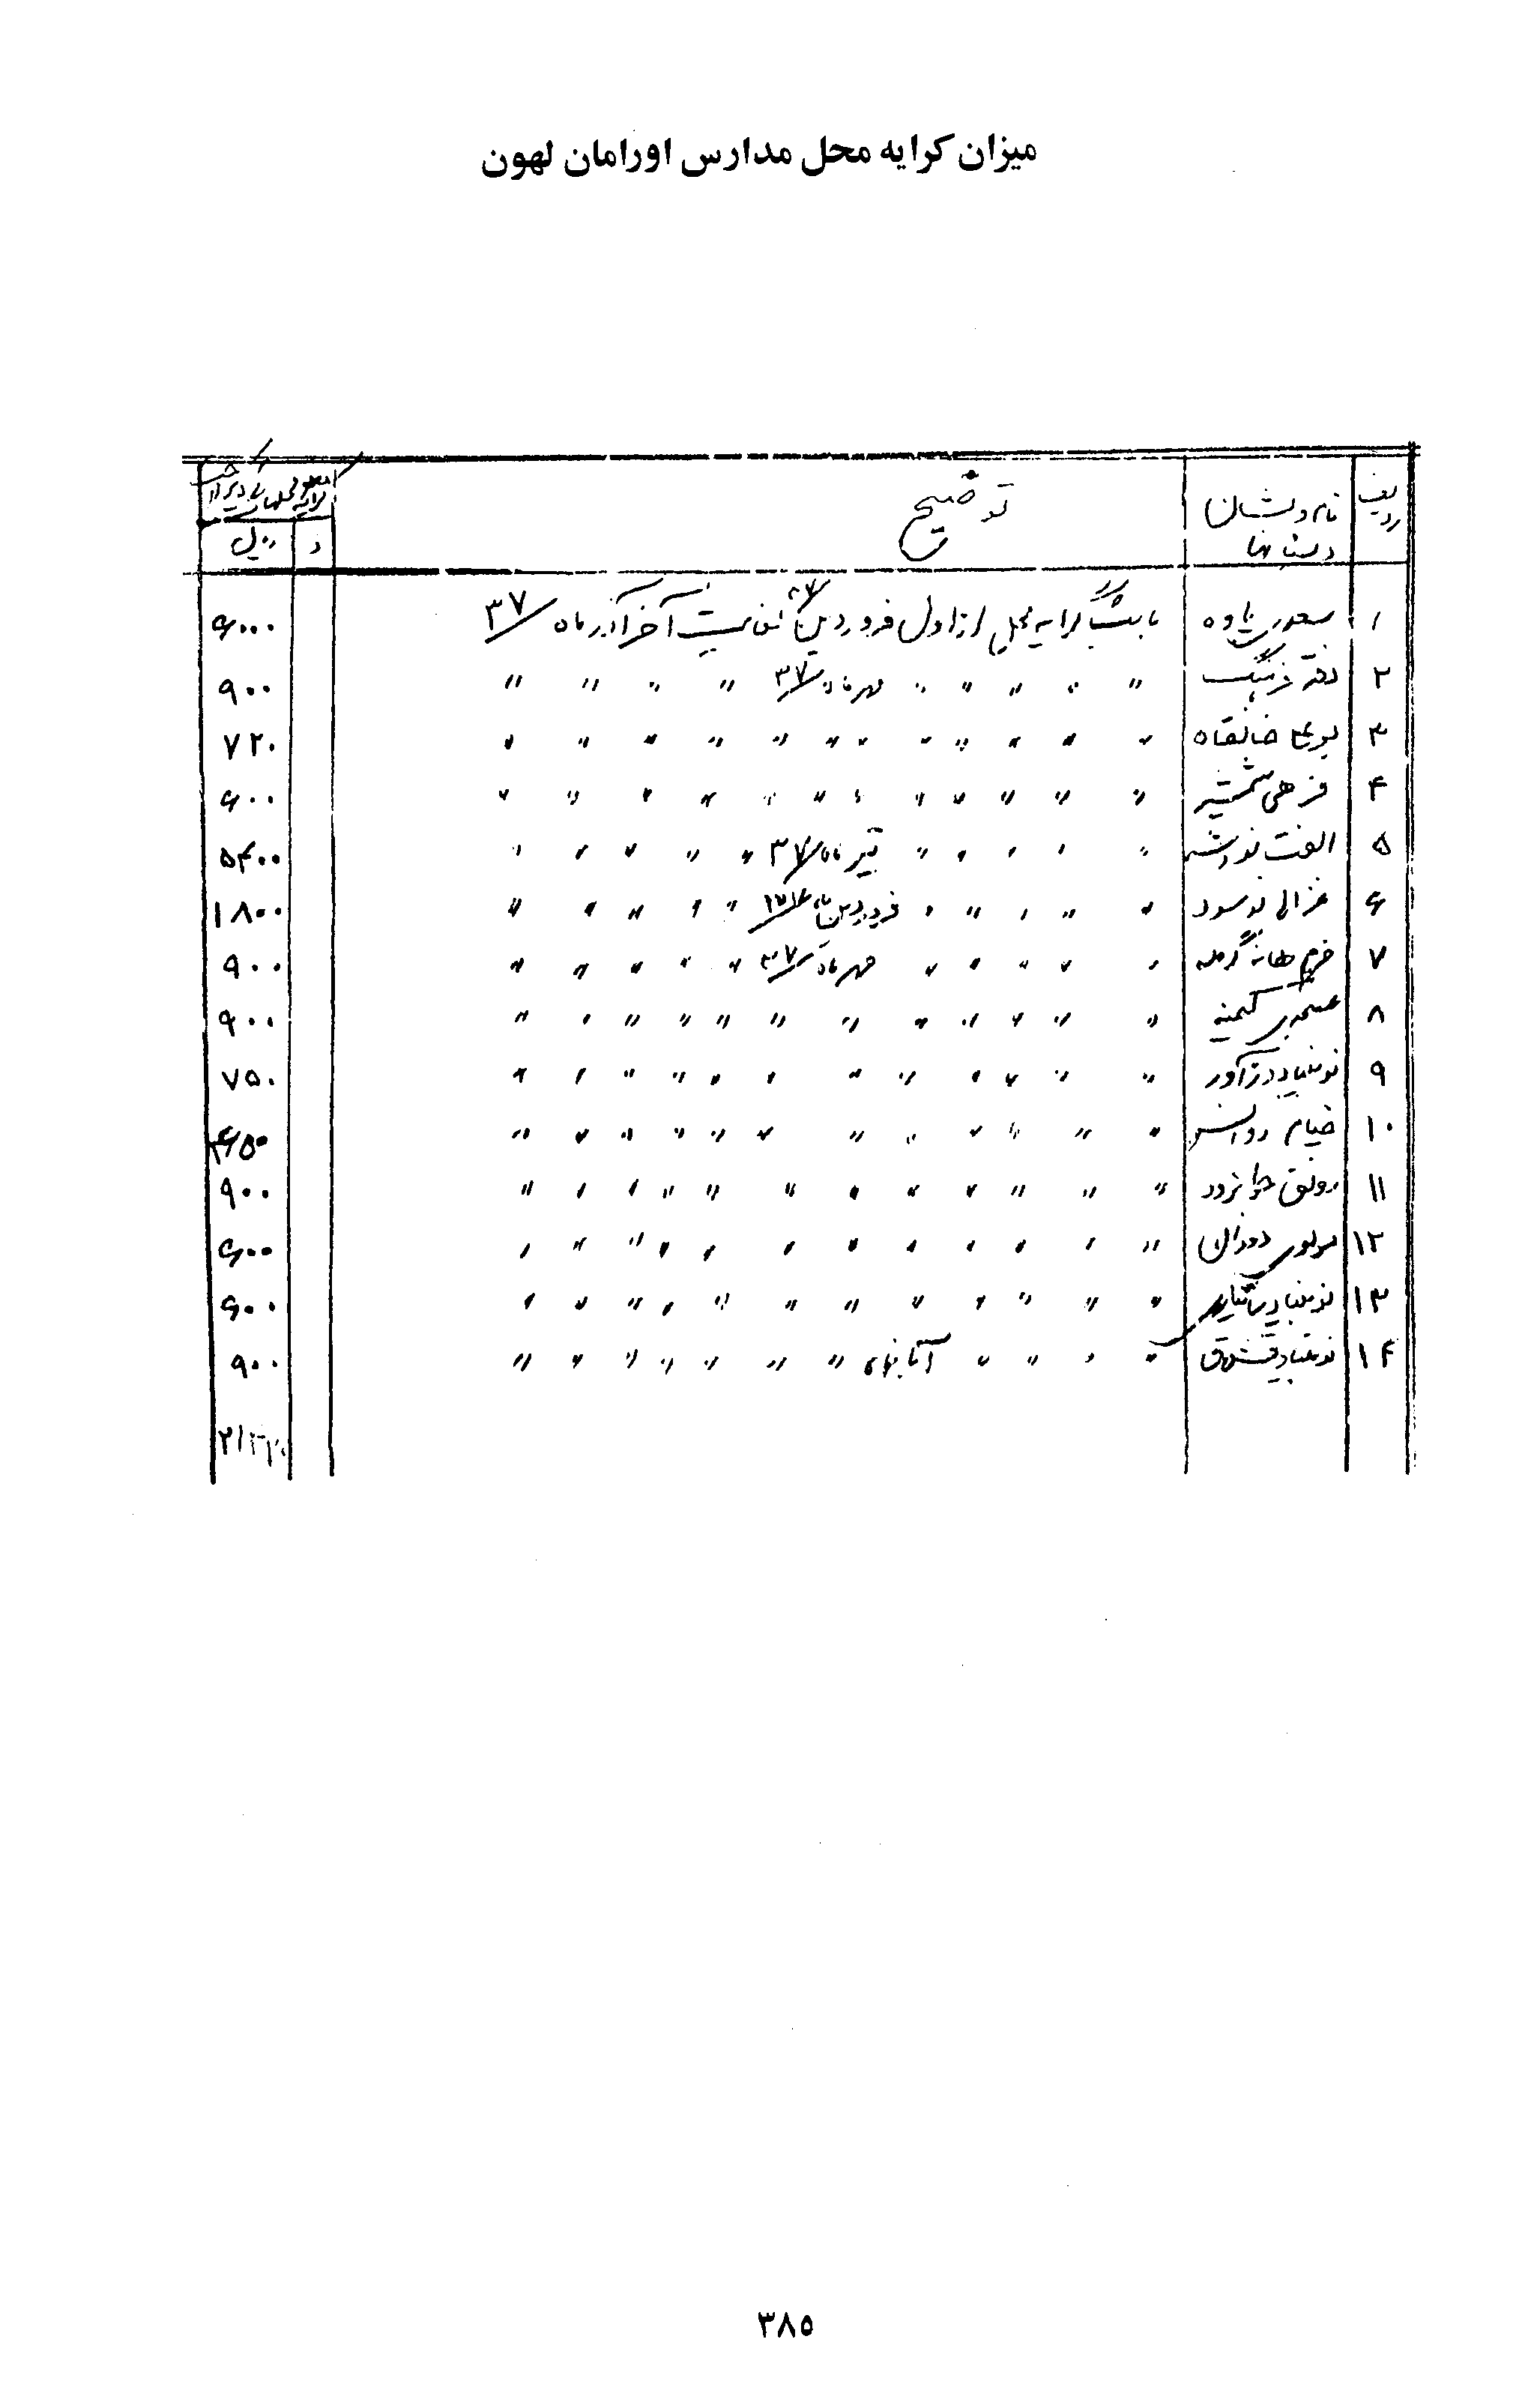 میزان کرایه محل مدارس اورامان لهون
ردیف نام و نشان دبستانها توضیح
د ریال
۱ سعدی پاوه بابت کرایه محل از اول فروردین ۳۷ لغایت آخر آذر ماه ۳۷ ۶۰۰۰
۲ دفتر فرهنگ " " " " " مهر ماه ۳۷ " " " " " ۹۰۰
۳ بوعلی خانقاه " " " " " " " " " " " " " ۷۲۰
۴ فرهی شمشیر " " " " " " " " " " " " " ۶۰۰
۵ الفت نودشه " " " " " تیر ماه ۳۷ " " " " " ۵۴۰۰
۶ غزالی نوسود " " " " " فروردین ماه " " " " " ۱۸۰۰
۷ خرم هانه گرمله " " " " " مهر ماه ۳۷ " " " " " ۹۰۰
۸ کیمنه " " " " " " " " " " " " ۹۰۰
۹ نوبنیاد دزآور " " " " " " " " " " " " ۷۵۰
۱۰ خیام روانسر " " " " " " " " " " " "
۱۱ رونق جوانرود " " " " " " " " " " " " ۹۰۰
۱۲ مولوی دوران " " " " " " " " " " " " ۶۰۰
۱۳ نوبنیاد " " " " " " " " " " " " ۶۰۰
۱۴ نوبنیاد قشلاق " " " " " آبانماه " " " " " " " ۹۰۰
۳۸۵